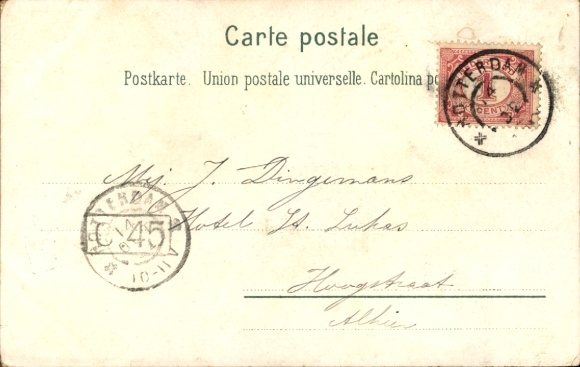 Carte postale
Postkarte. Union postale universelle. Cartolina po
ROTTERDAM
1
CENT
Mej. J. Dingemans
Hotel St. Lukas
Hoogstraat
Alhier
ROTTERDAM
C 45
10-11